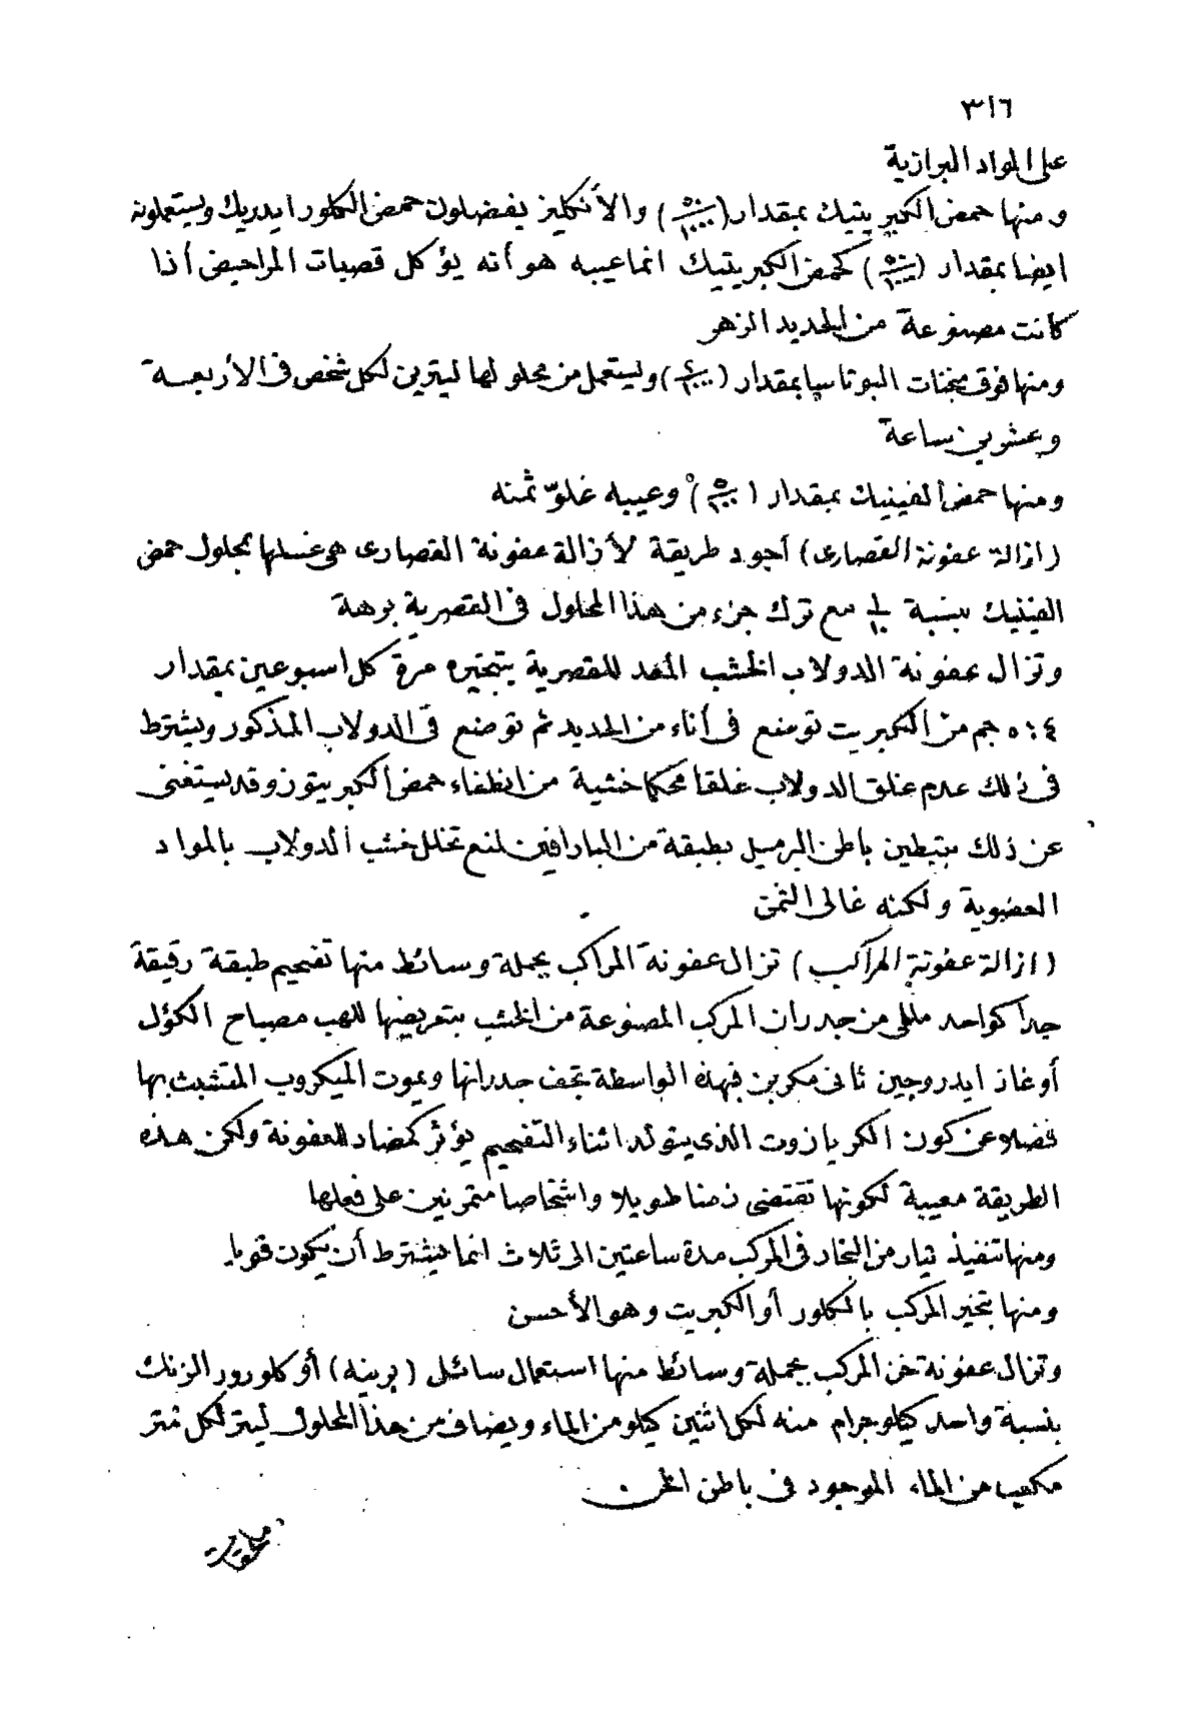 ٣١٦
على المواد البرازية
ومنها حمض الكبريتيك بمقدار (٥٠/١٠٠٠) والأنكليز يفضلون حمض الكلور ايدريك ويستعملونه
ايضا بمقدار (٥٠/١٠٠٠) كحمض الكبريتيك انما عيبه هو أنه يؤكل قصبات المراحيض أذا
كانت مصنوعة من الحديد الزهر
ومنها فوق منجنات البوتاسيا بمقدار (٤/١٠٠٠) ويستعمل من محلولها ليترين لكل شخص في الأربعة
وعشرين ساعة
ومنها حمض الفينيك بمقدار (٥٠/١٠٠٠) وعيبه غلوّ ثمنه
(ازالة عفونة القصارى) أجود طريقة لأزالة عفونة القصارى هي غسلها بمحلول حمض
الفينيك بنسبة ١/١٠ مع ترك جزء من هذا المحلول في القصرية برهة
وتزال عفونة الدولاب الخشب المعد للقصرية بتبخيره مرة كل اسبوعين بمقدار
٤ : ٥ جم من الكبريت توضع في أناء من الحديد ثم توضع في الدولاب المذكور ويشترط
في ذلك عدم غلق الدولاب غلقا محكما خشية من انطفاء حمض الكبريتوز وقد يستغنى
عن ذلك بتبطين باطن البرميل بطبقة من البارافين لمنع تخلل خشب الدولاب بالمواد
العضوية ولكنه غالى الثمن
(ازالة عفونة المراكب) تزال عفونة المراكب بجملة وسائط منها تفحيم طبقة رقيقة
جدا كواحد مللى من جدران المركب المصنوعة من الخشب بتعريضها للهب مصباح الكؤل
أو غاز ايدروجين ثانى مكربن فبهذه الواسطة تجف جدرانها ويموت الميكروب المتشبث بها
فضلا عن كون الكريازوت الذى يتولد اثناء التفحيم يؤثر كمضاد للعفونة ولكن هذه
الطريقة معيبة لكونها تقتضى زمنا طويلا واشخاصا متمرنين على فعلها
ومنها تنفيذ تيار من البخار في المركب مدة ساعتين الى ثلاث انما يشترط أن يكون قويا
ومنها تبخير المركب بالكلور أو الكبريت وهو الأحسن
وتزال عفونة خن المركب بجملة وسائط منها استعمال سائل (برينه) أو كلورور الزنك
بنسبة واحد كيلوجرام منه لكل اثنين كيلو من الماء ويضاف من هذا المحلول ليتر لكل متر
مكعب من الماء الموجود في باطن الخن